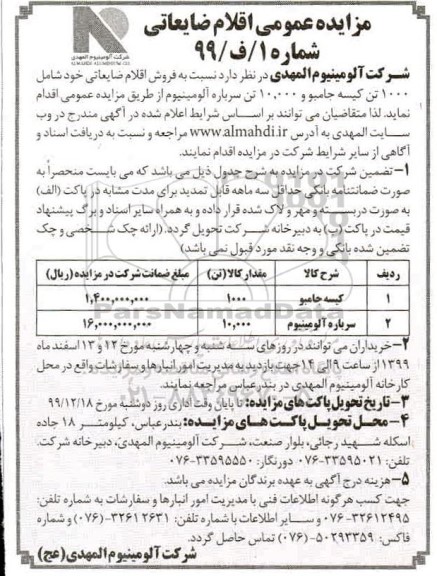 مزایده عمومی اقلام ضایعاتی
شماره ۱/ف/۹۹
شرکت آلومینیوم المهدی
ALMAHDI ALUMINIUM CO.
شرکت آلومینیوم المهدی در نظر دارد نسبت به فروش اقلام ضایعاتی خود شامل
۱۰۰۰ تن کیسه جامبو و ۱۰,۰۰۰ تن سرباره آلومینیوم از طریق مزایده عمومی اقدام
نماید. لذا متقاضیان می توانند بر اساس شرایط اعلام شده در آگهی مندرج در وب
سایت المهدی به آدرس www.almahdi.ir مراجعه و نسبت به دریافت اسناد و
آگاهی از سایر شرایط شرکت در مزایده اقدام نمایند.
۱- تضمین شرکت در مزایده به شرح جدول ذیل می باشد که می بایست منحصراً به
صورت ضمانتنامه بانکی حداقل سه ماهه قابل تمدید برای مدت مشابه در پاکت (الف)
به صورت دربسته و مهر و لاک شده قرار داده و به همراه سایر اسناد و برگ پیشنهاد
قیمت در پاکت (پ) به دبیرخانه شرکت تحویل گردد. (ارائه چک شخصی و چک
تضمین شده بانکی و وجه نقد مورد قبول نمی باشد)
ردیف شرح کالا مقدار کالا (تن) مبلغ ضمانت شرکت در مزایده (ریال)
۱ کیسه جامبو ۱۰۰۰ ۱,۴۰۰,۰۰۰,۰۰۰
۲ سرباره آلومینیوم ۱۰,۰۰۰ ۱۶,۰۰۰,۰۰۰,۰۰۰
ParsNamadData
۲- خریداران می توانند در روزهای سه شنبه و چهارشنبه مورخ ۱۲ و ۱۳ اسفند ماه
۱۳۹۹ از ساعت ۹ الی ۱۴ جهت بازدید به مدیریت امور انبارها و سفارشات واقع در محل
کارخانه آلومینیوم المهدی در بندرعباس مراجعه نمایند.
۳- تاریخ تحویل پاکت های مزایده: تا پایان وقت اداری روز دوشنبه مورخ ۹۹/۱۲/۱۸
۴- محل تحویل پاکت های مزایده: بندرعباس، کیلومتر ۱۸ جاده
اسکله شهید رجائی، بلوار صنعت، شرکت آلومینیوم المهدی، دبیرخانه شرکت.
تلفن: ۳۳۵۹۵۰۲۱-۰۷۶ دورنگار: ۳۳۵۹۵۵۵۰-۰۷۶
۵- هزینه درج آگهی به عهده برندگان مزایده می باشد.
جهت کسب هرگونه اطلاعات فنی با مدیریت امور انبارها و سفارشات به شماره تلفن:
۳۲۶۱۲۴۹۵-۰۷۶ و سایر اطلاعات با شماره تلفن: ۳۲۶۱۲۶۳۱-(۰۷۶) و شماره
فاکس: ۵۰۲۹۳۳۵۹-(۰۷۶) تماس حاصل گردد.
شرکت آلومینیوم المهدی (عج)